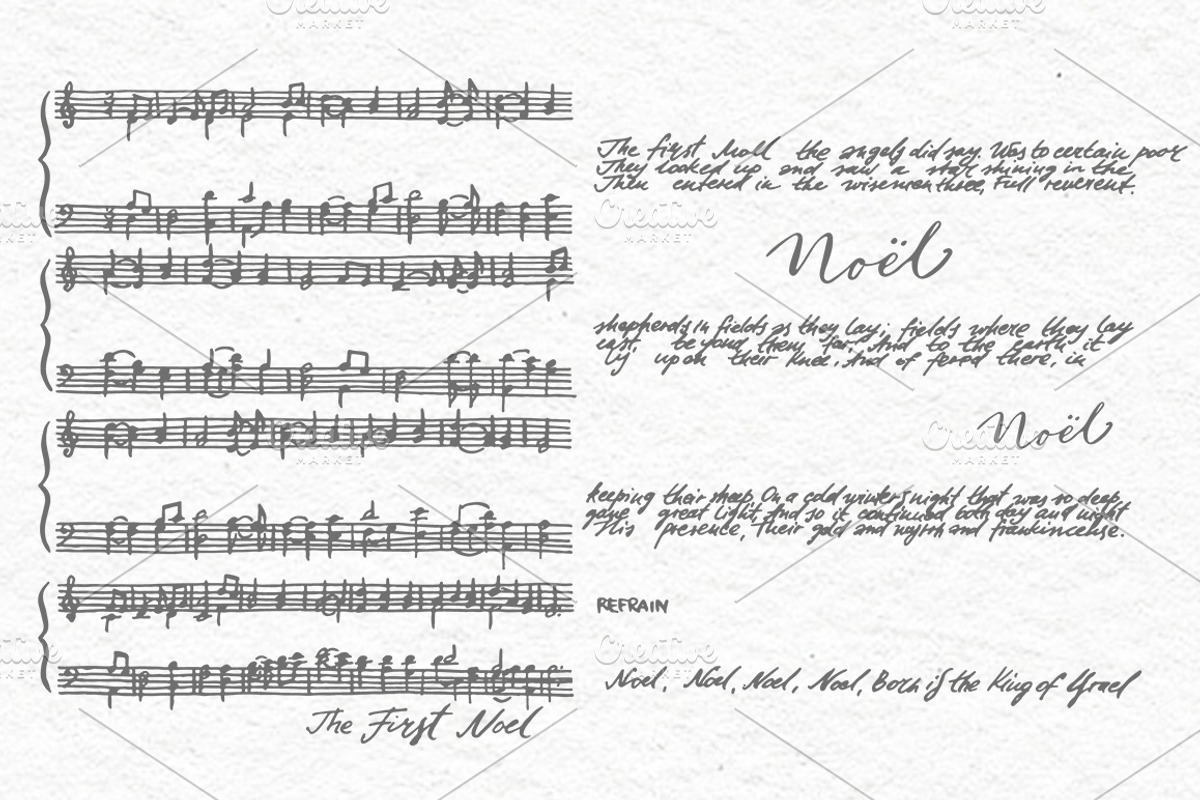 The first Noll the angels did say. Was to certain poor
They looked up and saw a star shining in the
Then entered in the wisemen three, Full reverent.
Noël
shepherds in fields as they lay; fields where they lay
east, beyond them far, And to the earth it
by upon their knee. And of fered there, in
Noël
keeping their sheep, On a cold winter's night that was so deep,
gave great light, And so it continued both day and night
His presence, Their gold and myrrh and frankincense.
REFRAIN
Noel, Noel, Noel, Noel, Born is the King of Israel
The First Noel
Creative
MARKET
Creative
MARKET
Creative
MARKET
Creative
MARKET
Creative
MARKET
Creative
MARKET
Creative
MARKET